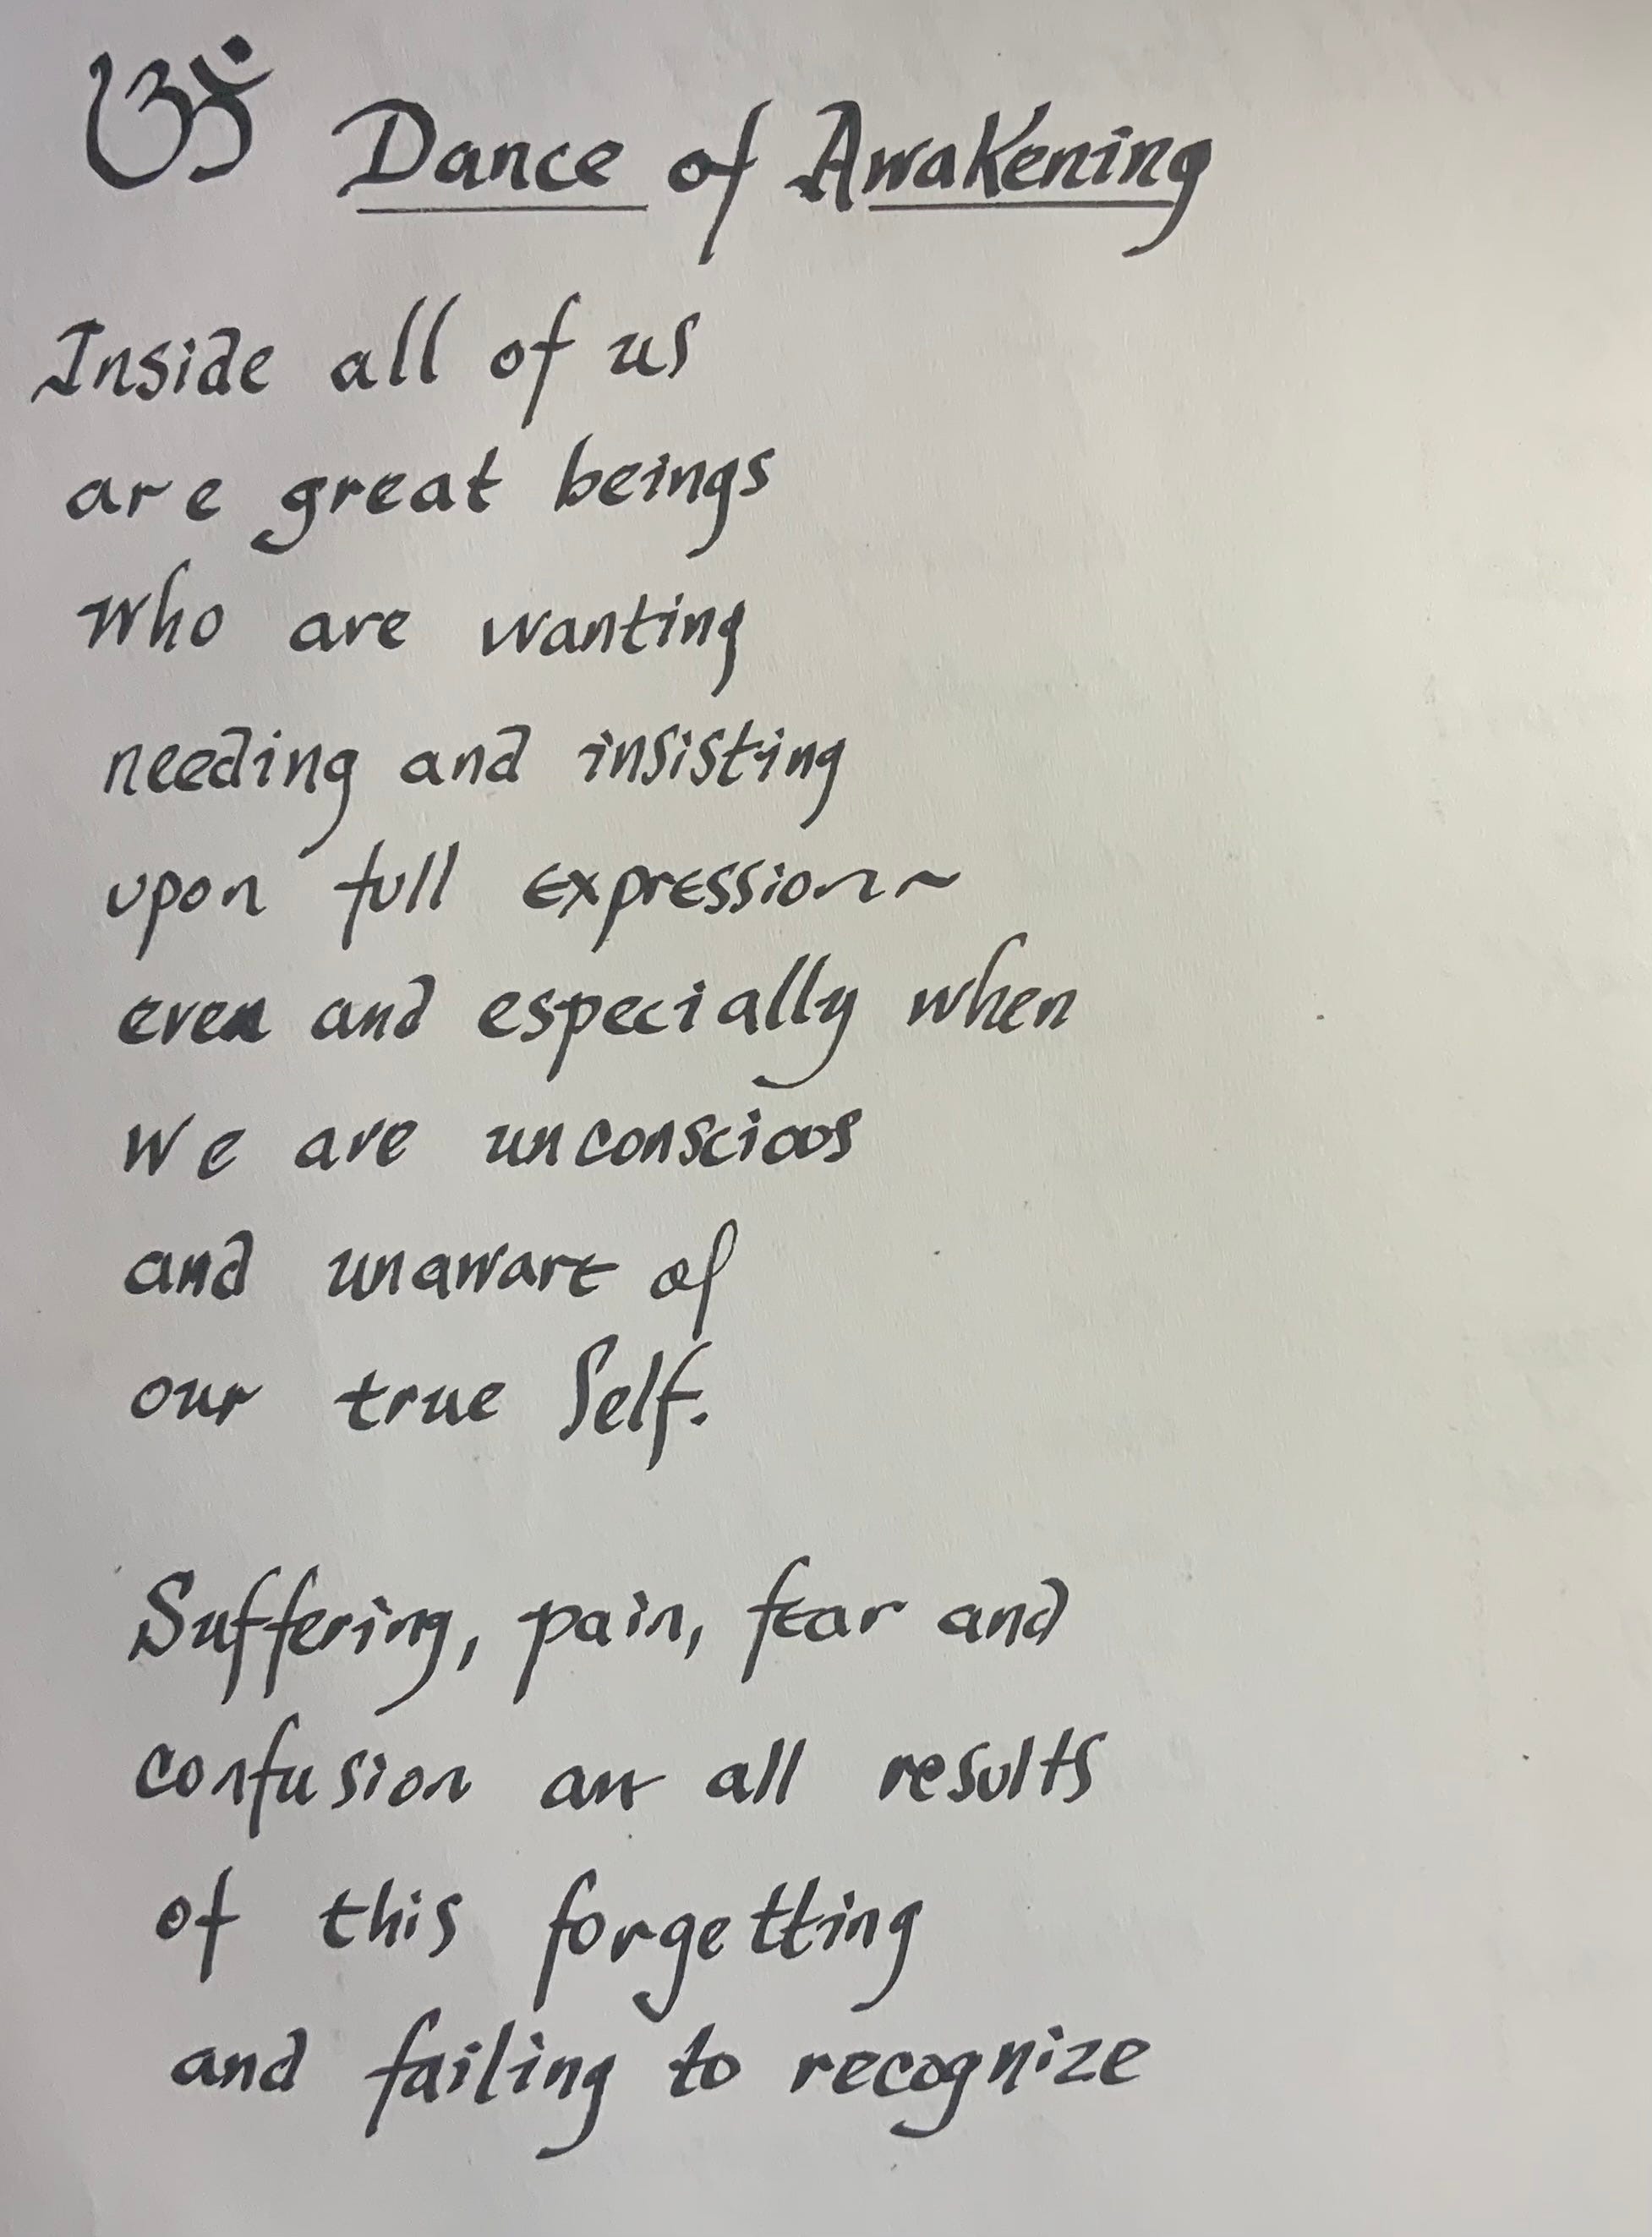 ॐ Dance of Awakening
Inside all of us
are great beings
who are wanting
needing and insisting
upon full expression~
even and especially when
we are unconscious
and unaware of
our true Self.
Suffering, pain, fear and
confusion are all results
of this forgetting
and failing to recognize